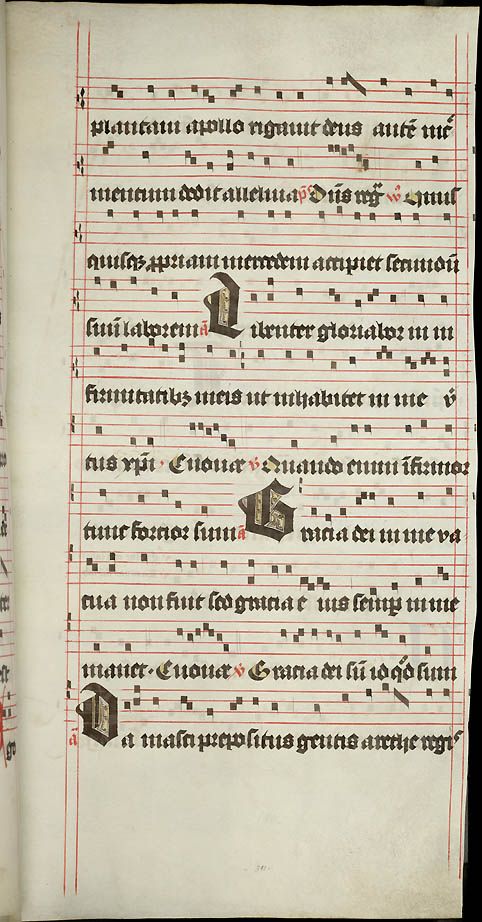 plantaui apollo rigauit deus autē incͥ
mentum dedit alleluia pͥ̄ Dūs regͣ vͦ Quis
quisqꝫ ꝓpriam mercedem accipiet secundū
suū laborem a Libenter gloriabor in in
firmitatibꝫ meis ut inhabitet in me v̾
tus xpī · Euouae v̾ Quando enim īfirmor
tunc fortior sum a Gracia dei in me va
cua non fuit sed gracia eius semꝑ in me
manet · Euouae v̾ Gracia dei sū id qͦd sum
a Damasci prepositus gentis arethe regis